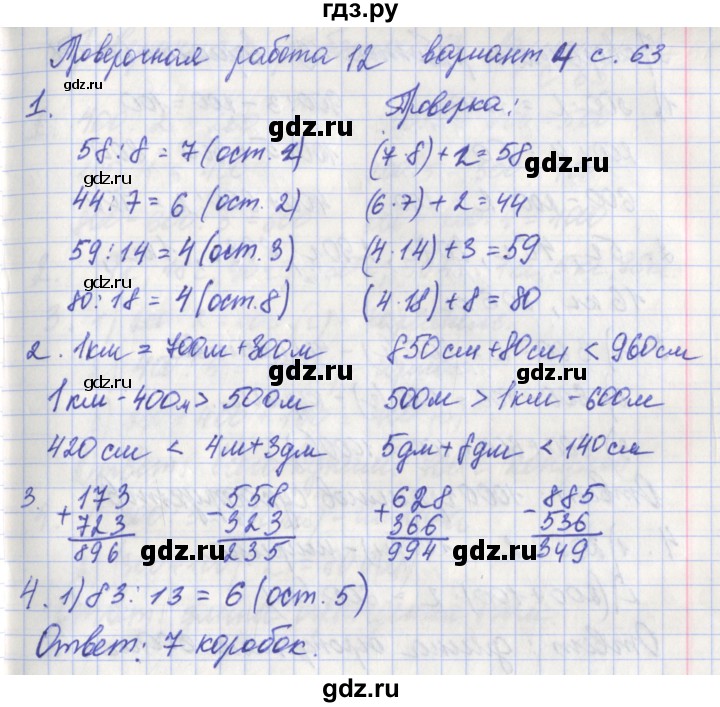 гдз.ру
Проверочная работа 12 вариант 4 с. 63
gdz.ru gdz.ru
1. Проверка:
gdz.ru
58:8 = 7 (ост. 2) (7·8)+2=58
gdz.ru gdz.ru
44:7 = 6 (ост. 2) (6·7)+2=44
59:14 = 4 (ост. 3) (4·14)+3=59
gdz.ru gdz.ru
80:18 = 4 (ост. 8) (4·18)+8=80
2. 1км = 700м+300м 850см+80см < 960см
gdz.ru gdz.ru
1км-400м > 500м 500м > 1км-600м
420см < 4м+3дм 5дм+8дм < 140см
gdz.ru gdz.ru
3. +173 -558 +628 -885
723 323 366 536
896 235 994 349
gdz.ru gdz.ru
4. 1) 83:13 = 6 (ост. 5)
gdz.ru gdz.ru
Ответ: 7 коробок.
gdz.ru